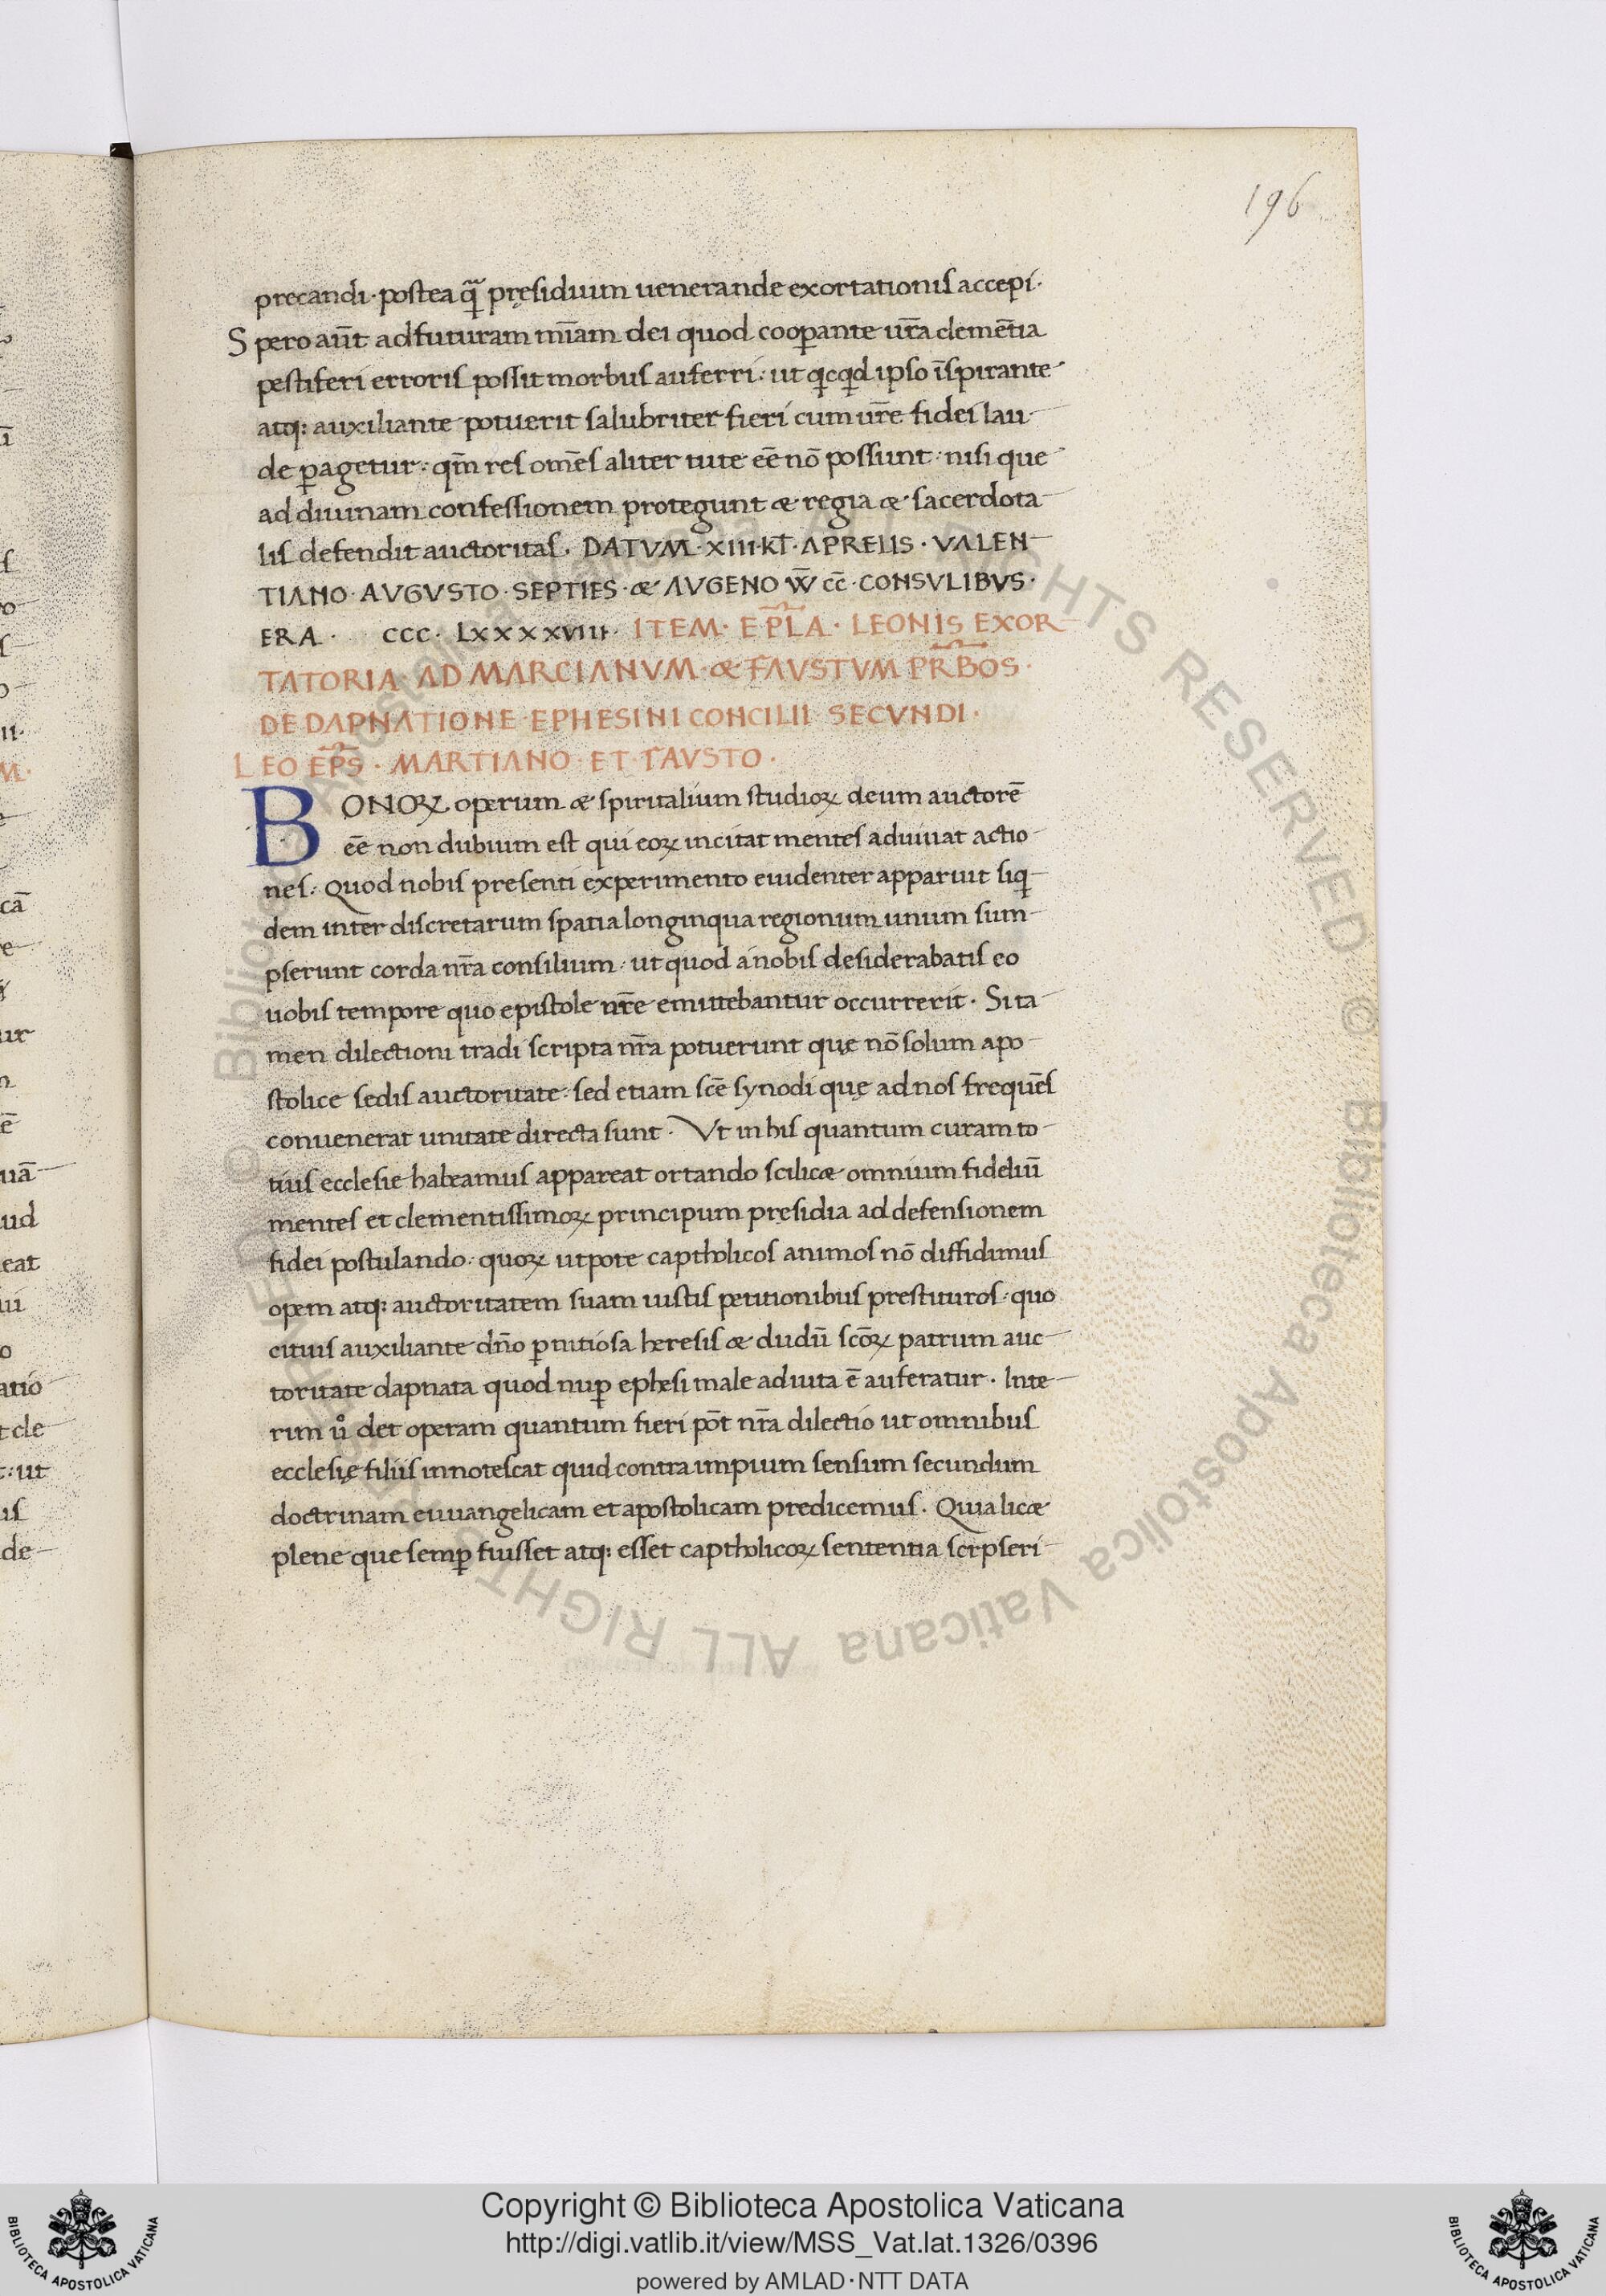 196
precandi · postea qᷓ pręsidium uenerande exortationis accepi ·
Spero aūt ad futuram mīam dei quod coop̄ante ur̄a clemētia
pestiferi erroris possit morbus auferri : ut qͥcqͥd ipso īspirante
atq: auxiliante potuerit salubriter fieri cum ur̄e fidei lau-
de p̄agetur : qm̄ res om̄es aliter tute eē nō possunt : nisi que
ad diuinam confessionem protegunt & regia & sacerdota-
lis defendit auctoritas · DATVM · XIII · KL̄ · APRELIS · VALEN-
TIANO · AVGVSTO · SEPTIES · & AVGENO VV̄ cc̄ · CONSVLIBVS ·
ERA · CCC · LXXXXVIII · ITEM · EPL̄A · LEONIS EXOR-
TATORIA · AD MARCIANVM · & FAVSTVM PR̄BOS ·
DE DAPNATIONE · EPHESINI CONCILII SECVNDI ·
LEO EP̄S · MARTIANO · ET FAVSTO ·
BONOꝜ operum & spiritalium studioꝝ deum auctorē
eē non dubium est qui eoꝝ incitat mentes adiuuat actio-
nes : Quod nobis presenti experimento euidenter apparuit siq-
dem inter discretarum spatia longinqua regionum unum sum-
pserunt corda nr̄a consilium : ut quod a nobis desiderabatis eo
uobis tempore quo epistole nr̄e emittebantur occurrerit · Si ta-
men dilectioni tradi scripta nr̄a potuerunt quę nō solum apo-
stolice sedis auctoritate : sed etiam scē synodi quę ad nos frequēs
conuenerat unitate directa sunt · Vt in his quantum curam to-
tius ecclesie habeamus appareat ortando scilic& omnium fideliū
mentes et clementissimoꝝ principum presidia ad defensionem
fidei postulando : quoꝝ utpote captholicos animos nō diffidimus
opem atq: auctoritatem suam iustis petitionibus prestituros : quo
citius auxiliante dn̄o p̄nitiosa heresis & dudū scōꝝ patrum auc-
toritate dapnata quod nup̄ ephesi male adiuta ē auferatur · Inte-
rim u̥ det operam quantum fieri pōt nr̄a dilectio ut omnibus
ecclesię filiis innotescat quid contra impium sensum secundum
doctrinam euuangelicam et apostolicam predicemus · Quia lic&
plene que semp̄ fuisset atq: esset captholicoꝝ sententia scrpseri-
Copyright © Biblioteca Apostolica Vaticana
http://digi.vatlib.it/view/MSS_Vat.lat.1326/0396
powered by AMLAD·NTT DATA